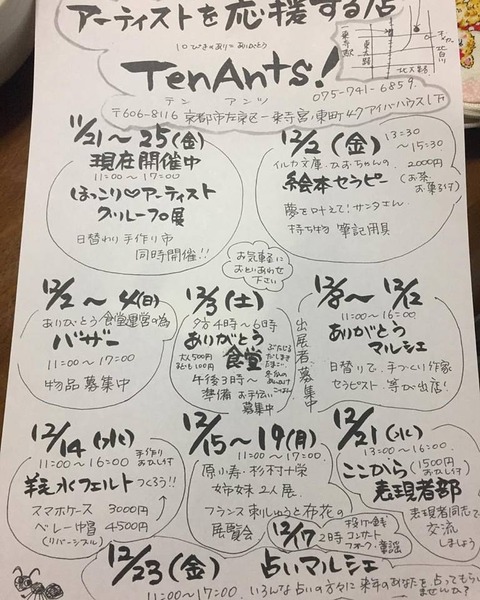 アーティストを応援する店
10ぴきのありの ありがとう
TenAnts!
テン アンツ
075-741-6859
〒606-8116 京都市左京区一乗寺宮ノ東町47 アイハーハウス1下
一乗寺駅
東大路
北大路
北白川
11/21～25(金)
現在開催中
11:00～17:00
ほっこり♡アーティスト
グループ展
日替わり 手作り市
同時開催!!
12/2(金) 13:30
～15:30
イルカ文庫・ひおちゃんの 2000円
絵本セラピー (お茶
お菓子付
夢を叶えて!サンタさん
持ち物 筆記用具
お気軽に
おといあわせ
下さい
12/2～4(日)
ありがとう食堂運営の為
バザー
11:00～17:00
物品募集中
12/3(土)
夕方4時～6時
ありがとう
食堂
大人500円
子ども100円
午後3時～
準備 お手伝い
募集中
出展者募集中
12/8～12/12
11:00～16:00
ありがとう
マルシェ
日替りで、手づくり作家
セラピスト 等が出店!
12/14(水)
11:00～16:00 手作り
おかし付
羊毛水フェルトつくろう!!
スマホケース 3000円
ベレー帽 4500円
(リバーシブル)
12/15～19(月)
11:00～17:00
原小寿・杉村十栄
姉妹 2人展
フランス刺しゅうと布花の
展覧会
12/17 2時
投げ銭
コンサート
フォーク、童謡
12/21(水)
13:00～16:00
ここから (1500円
おかし付)
表現者部
表現者同志で
交流
しましょう
12/23(金) 占いマルシェ
11:00～17:00 いろんな占いの方々に来年のあなたを占ってもらい
ませんか?